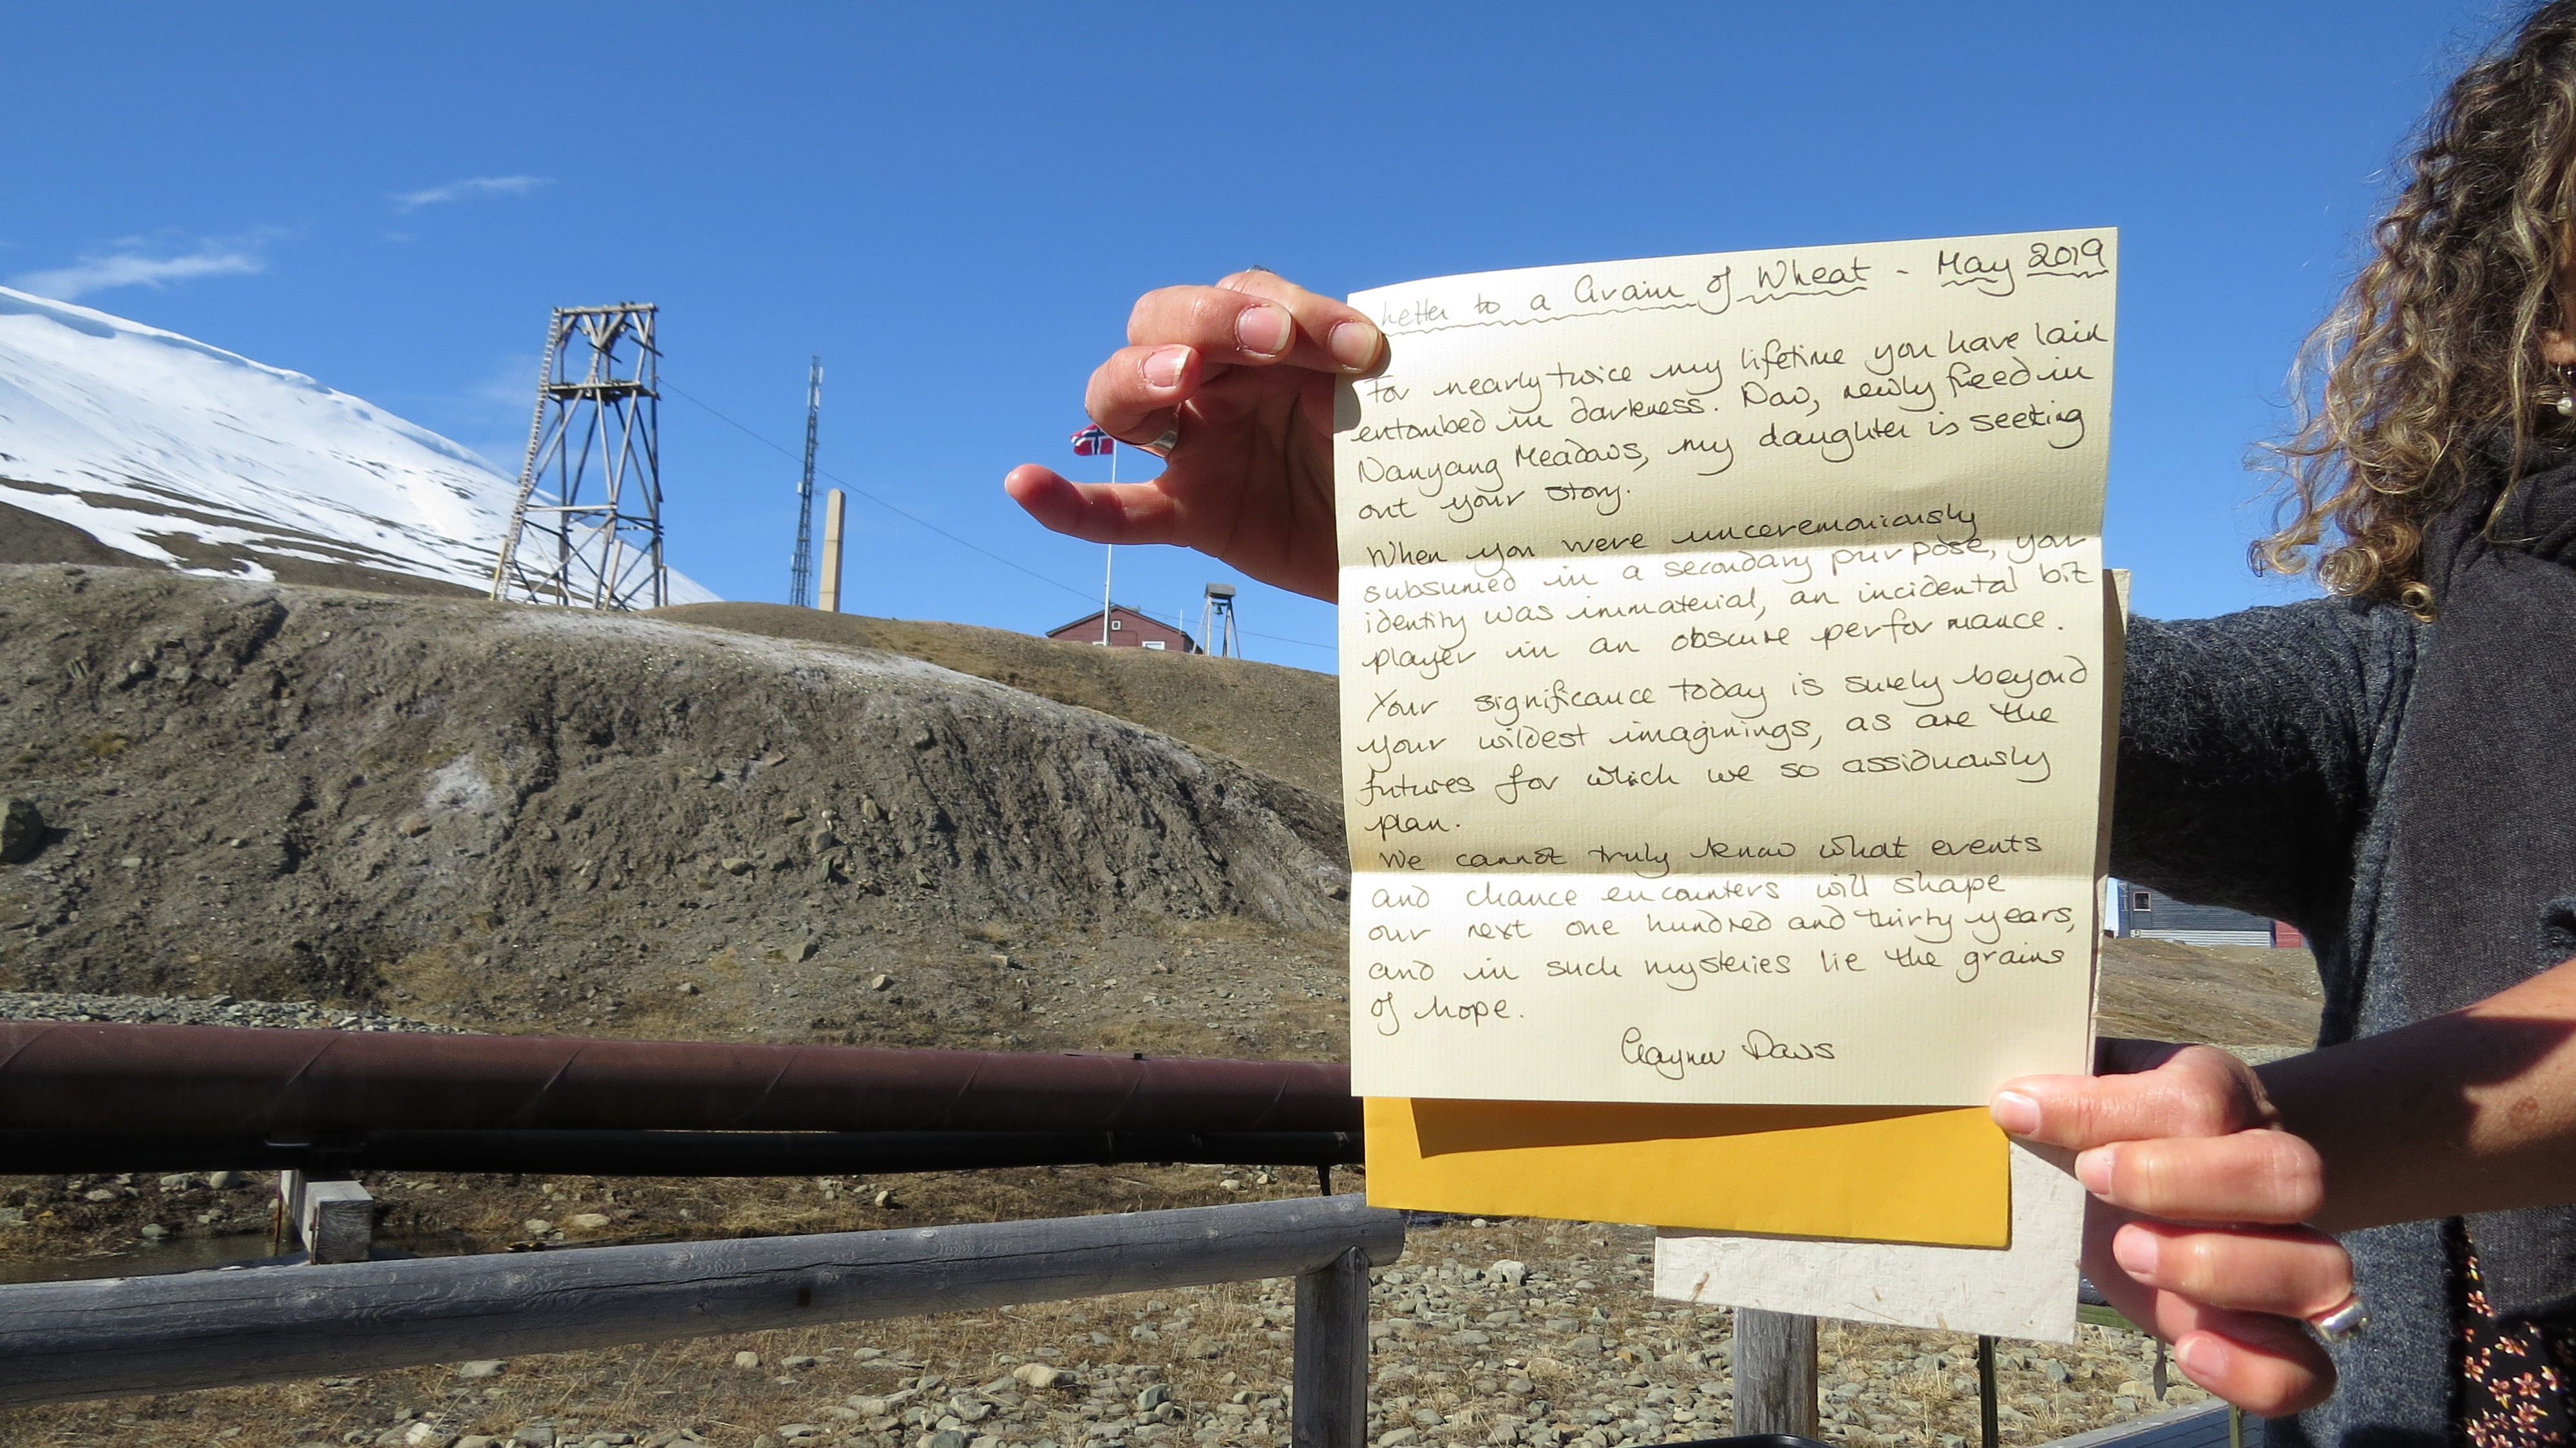 Letter to a Grain of Wheat - May 2019
For nearly twice my lifetime you have lain
entombed in darkness. Now, newly freed in
Nanyang Meadows, my daughter is seeking
out your story.
When you were unceremoniously
subsumed in a secondary purpose, your
identity was immaterial, an incidental bit
player in an obscure performance.
Your significance today is surely beyond
your wildest imaginings, as are the
futures for which we so assiduously
plan.
We cannot truly know what events
and chance encounters will shape
our next one hundred and thirty years,
and in such mysteries lie the grains
of hope.
Gaynor Davs